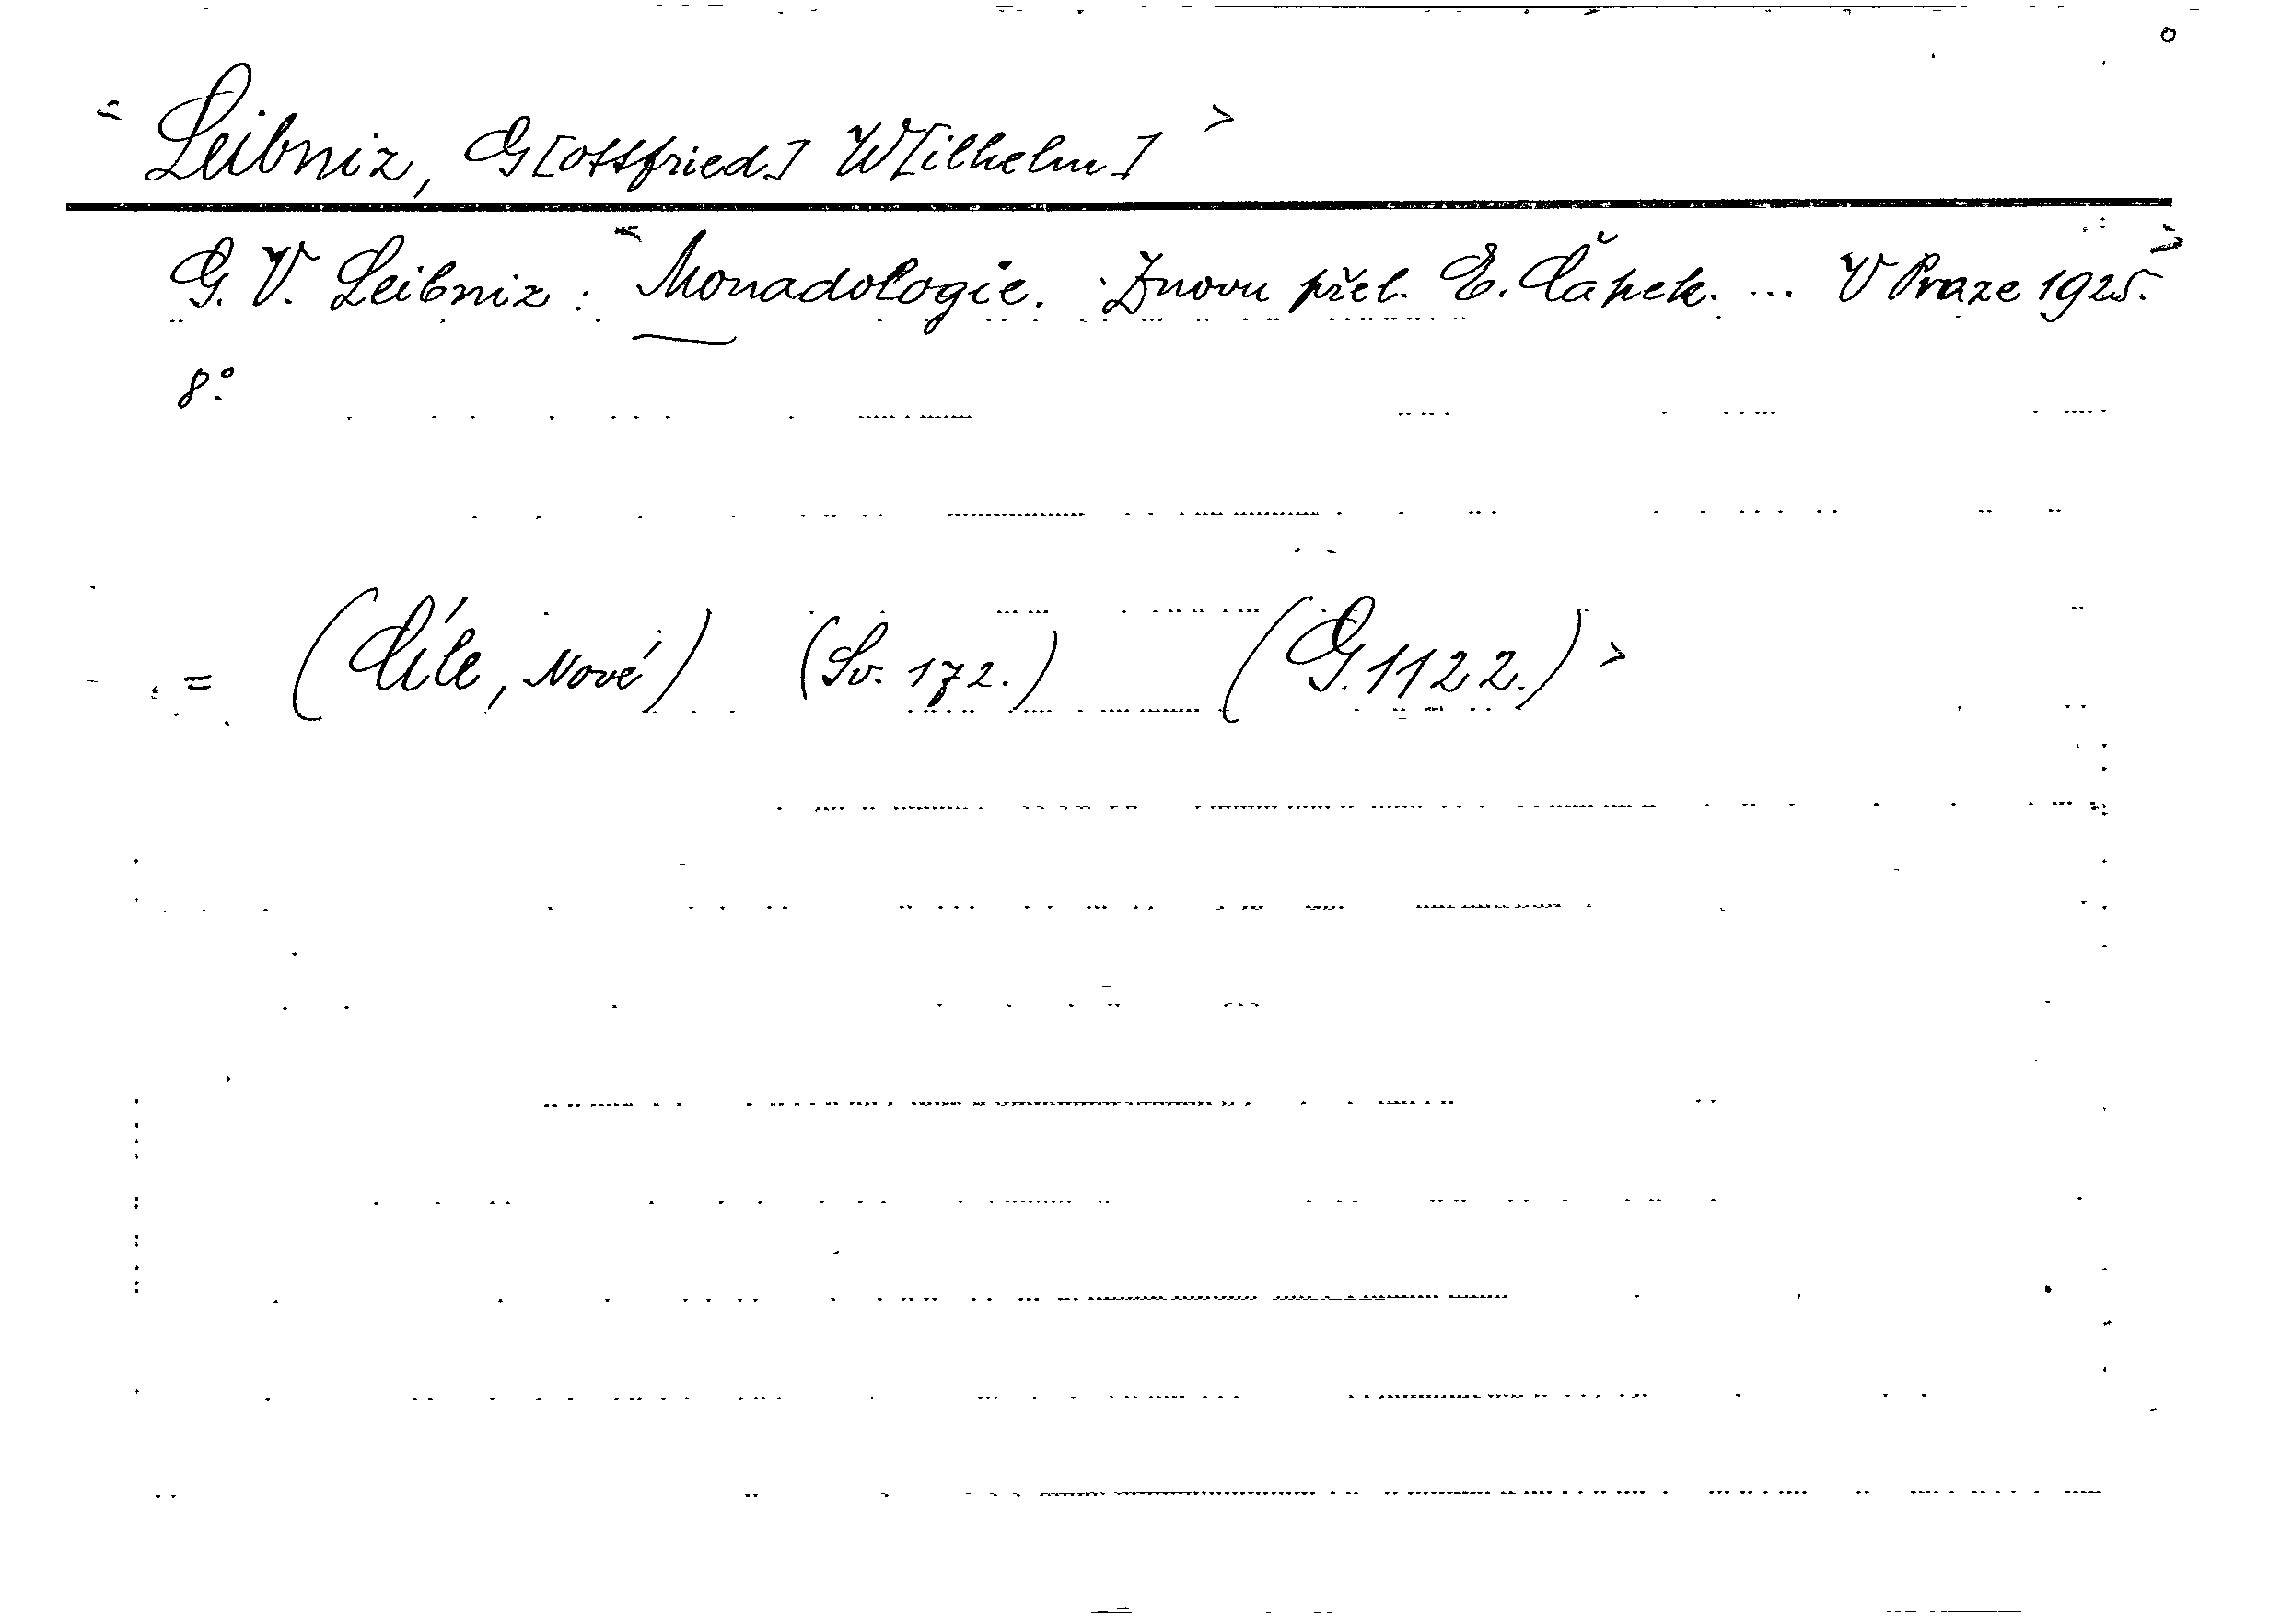 Leibniz, G[ottfried] W[ilhelm]
G. V. Leibniz: Monadologie. Znovu přel. E. Čapek. ... V Praze 1925.
8°.
= (Cíle, Nové) (Sv. 172.) (G.1122.)